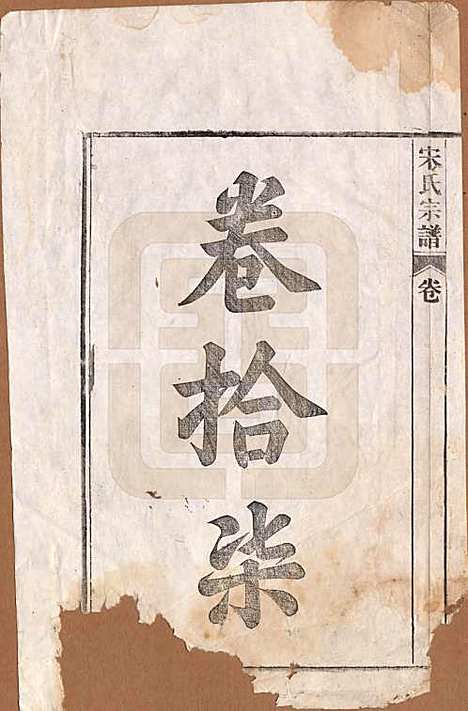 宋氏宗譜
卷
卷拾柒